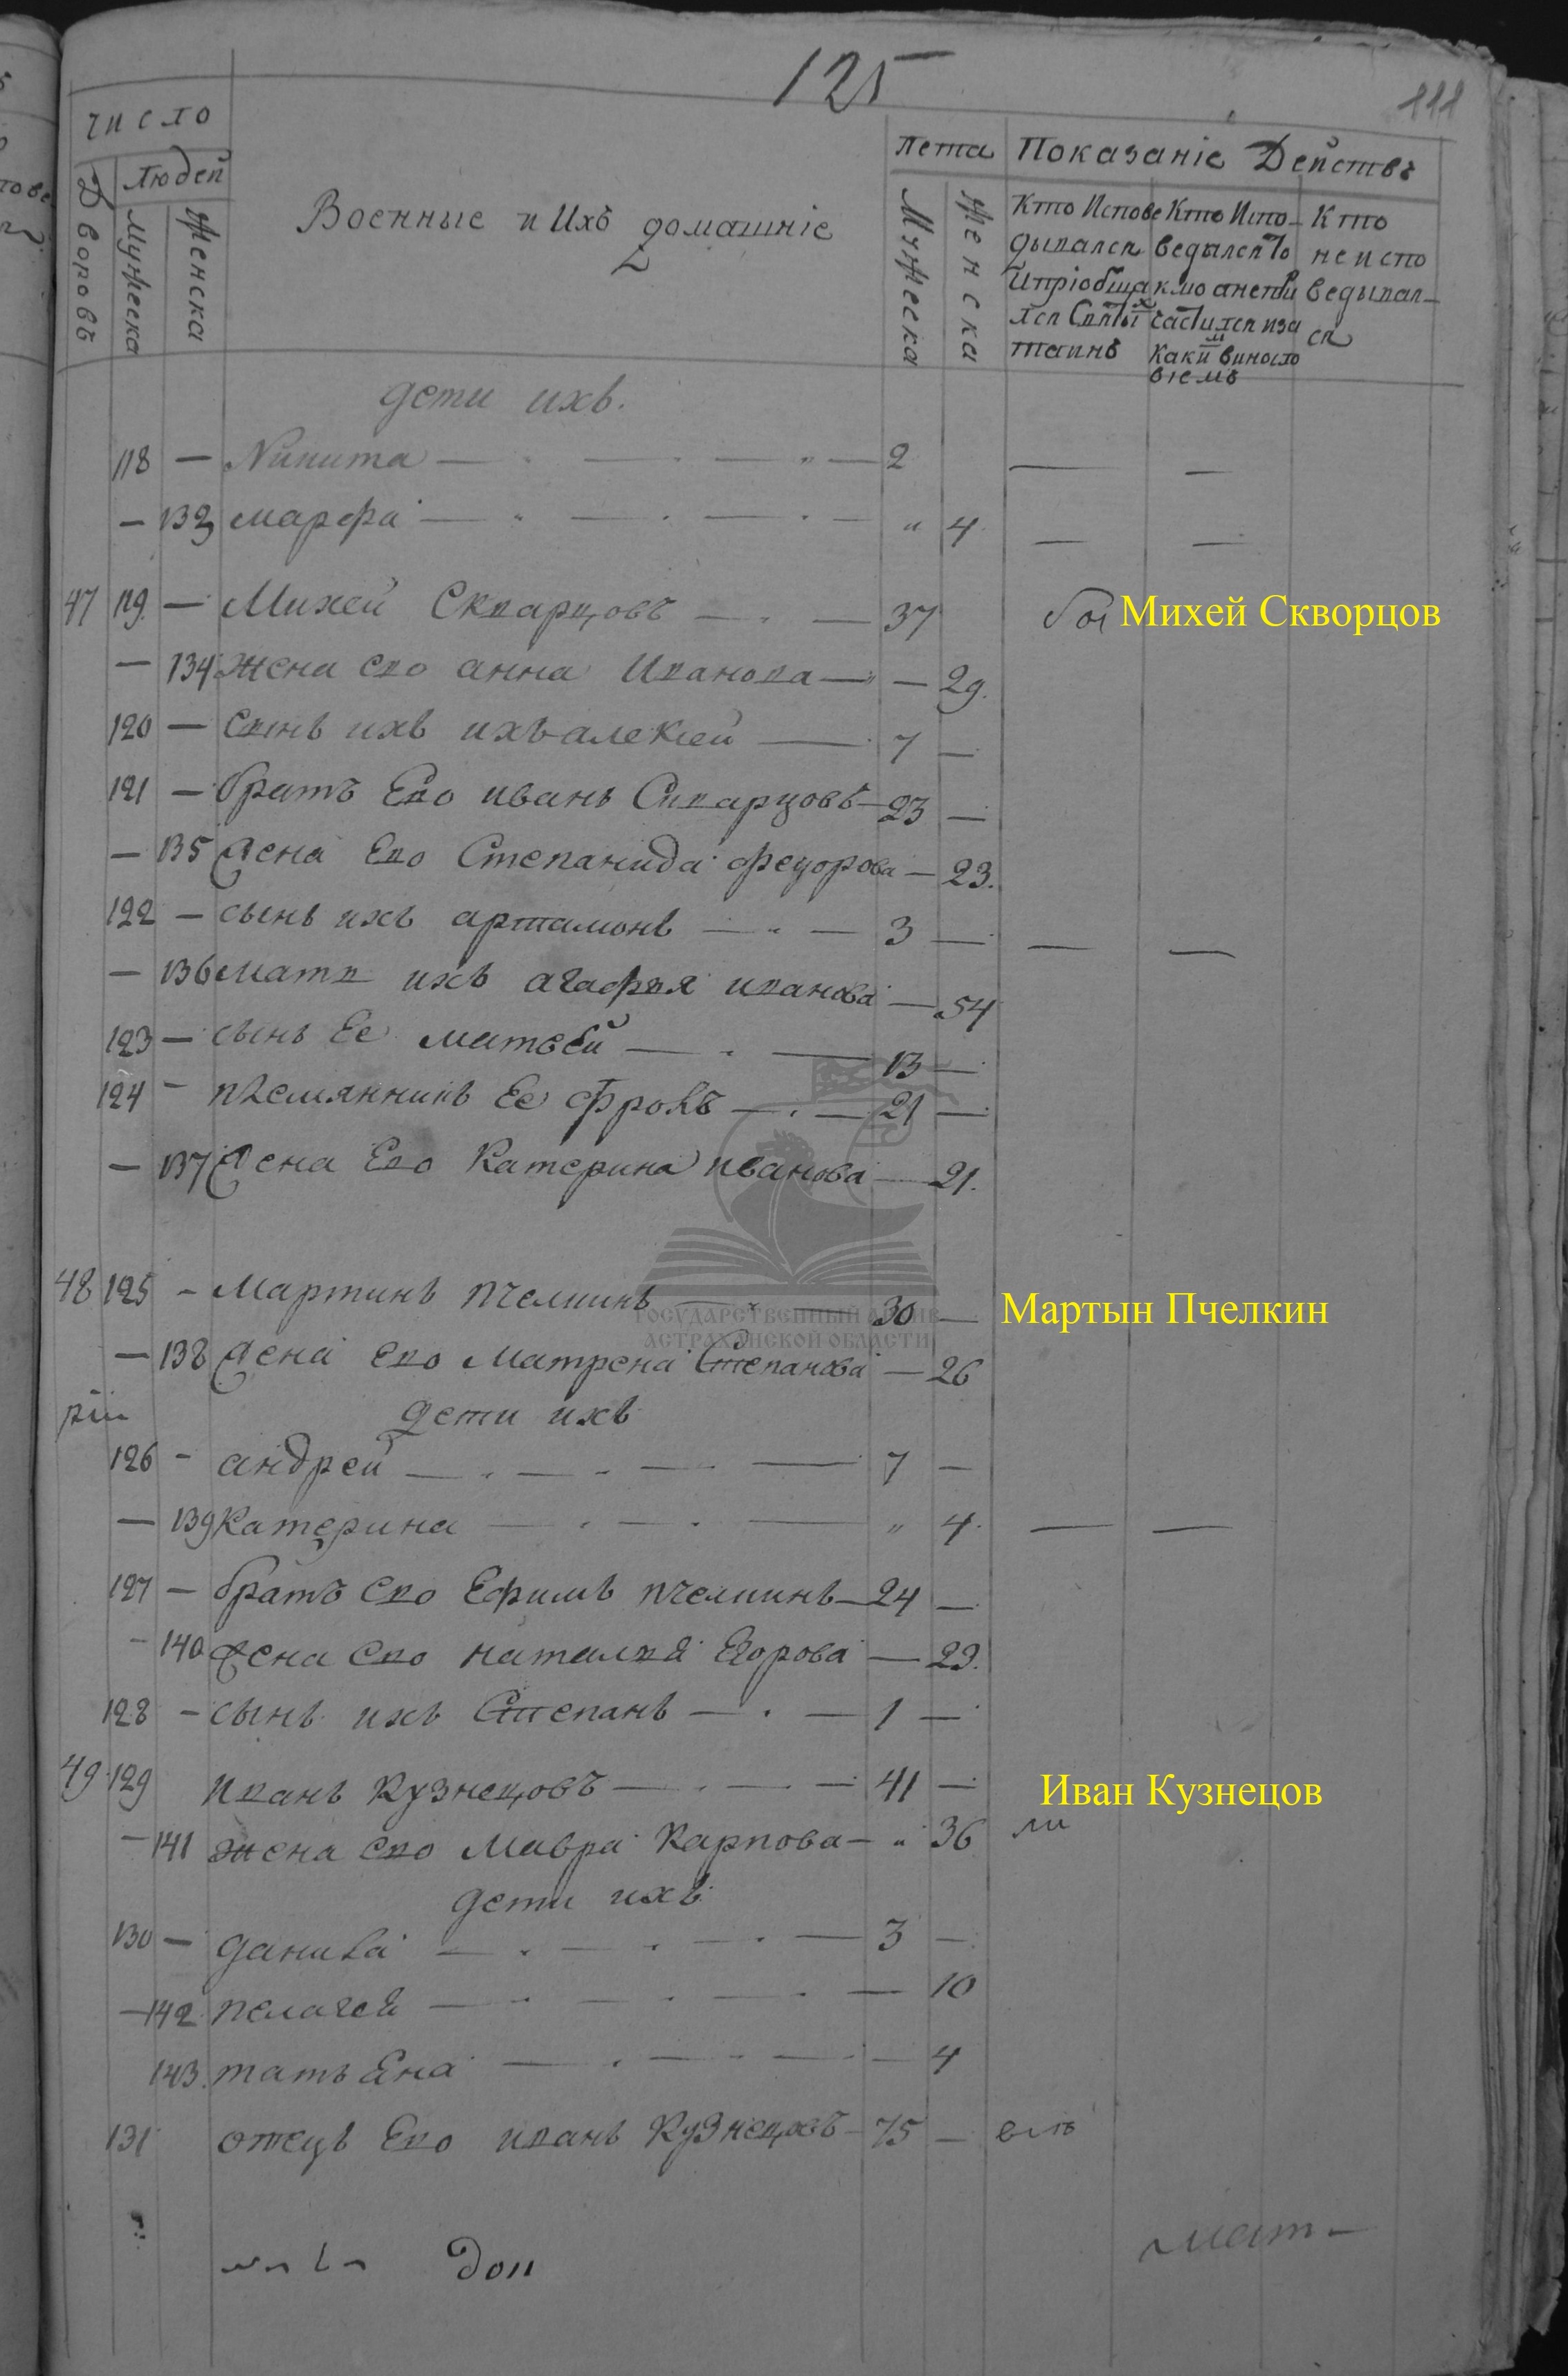 125
111
число
Дворовъ
людей
мужеска
женска
Военные и Ихъ домашніе
лета
Мужеска
женска
Показаніе Действъ
Кто Испове
дывался
Ипріобща
лся Святы х
таинъ
Кто Испо-
ведылся То
кмо анепри
частился иза
каки м винасло
віемъ
Кто
неиспо
ведывал-
ся
дети ихъ.
118 — Никита — 2 — —
— 133 марфа — " 4 — —
47 119. — Михей Скварцовъ — 37
Михей Скворцов
— 134 жена ево анна Иванова — — 29.
120 — сынъ ихъ ихъ алексей — 7 —
121 — братъ Ево иванъ Скварцовъ — 23 —
— 135 жена Ево Степанида федорова — 23.
122 — сынъ ихъ артамонъ — 3 — — —
— 136 мать ихъ агафья иванова — 54
123 — сынъ Ее матвей — 13 —
124 — племянникъ Ее Фролъ — 21 —
— 137 жена Ево Катерина иванова — 21.
48 125 — Мартинъ пчелкинъ — 30 —
Мартын Пчелкин
ГОСУДАРСТВЕННЫЙ АРХИВ
АСТРАХАНСКОЙ ОБЛАСТИ
— 138 жена ево Матрена Степанова — 26
дети ихъ
126 — андрей — 7 —
— 139 Катерина — " 4. — —
127 — братъ ево Ефимъ пчелкинъ — 24 —
— 140 жена ево наталья Егорова — 23.
128 — сынъ ихъ Степанъ — 1 —
49 129 иванъ Кузнецовъ — 41 —
Иван Кузнецов
— 141 жена ево Мавра Карпова — " 36
дети ихъ
130 — данила — 3 —
— 142 пелагея — 10
143. татьяна — 4
131 отецъ Ево иванъ Кузнецовъ — 75 —